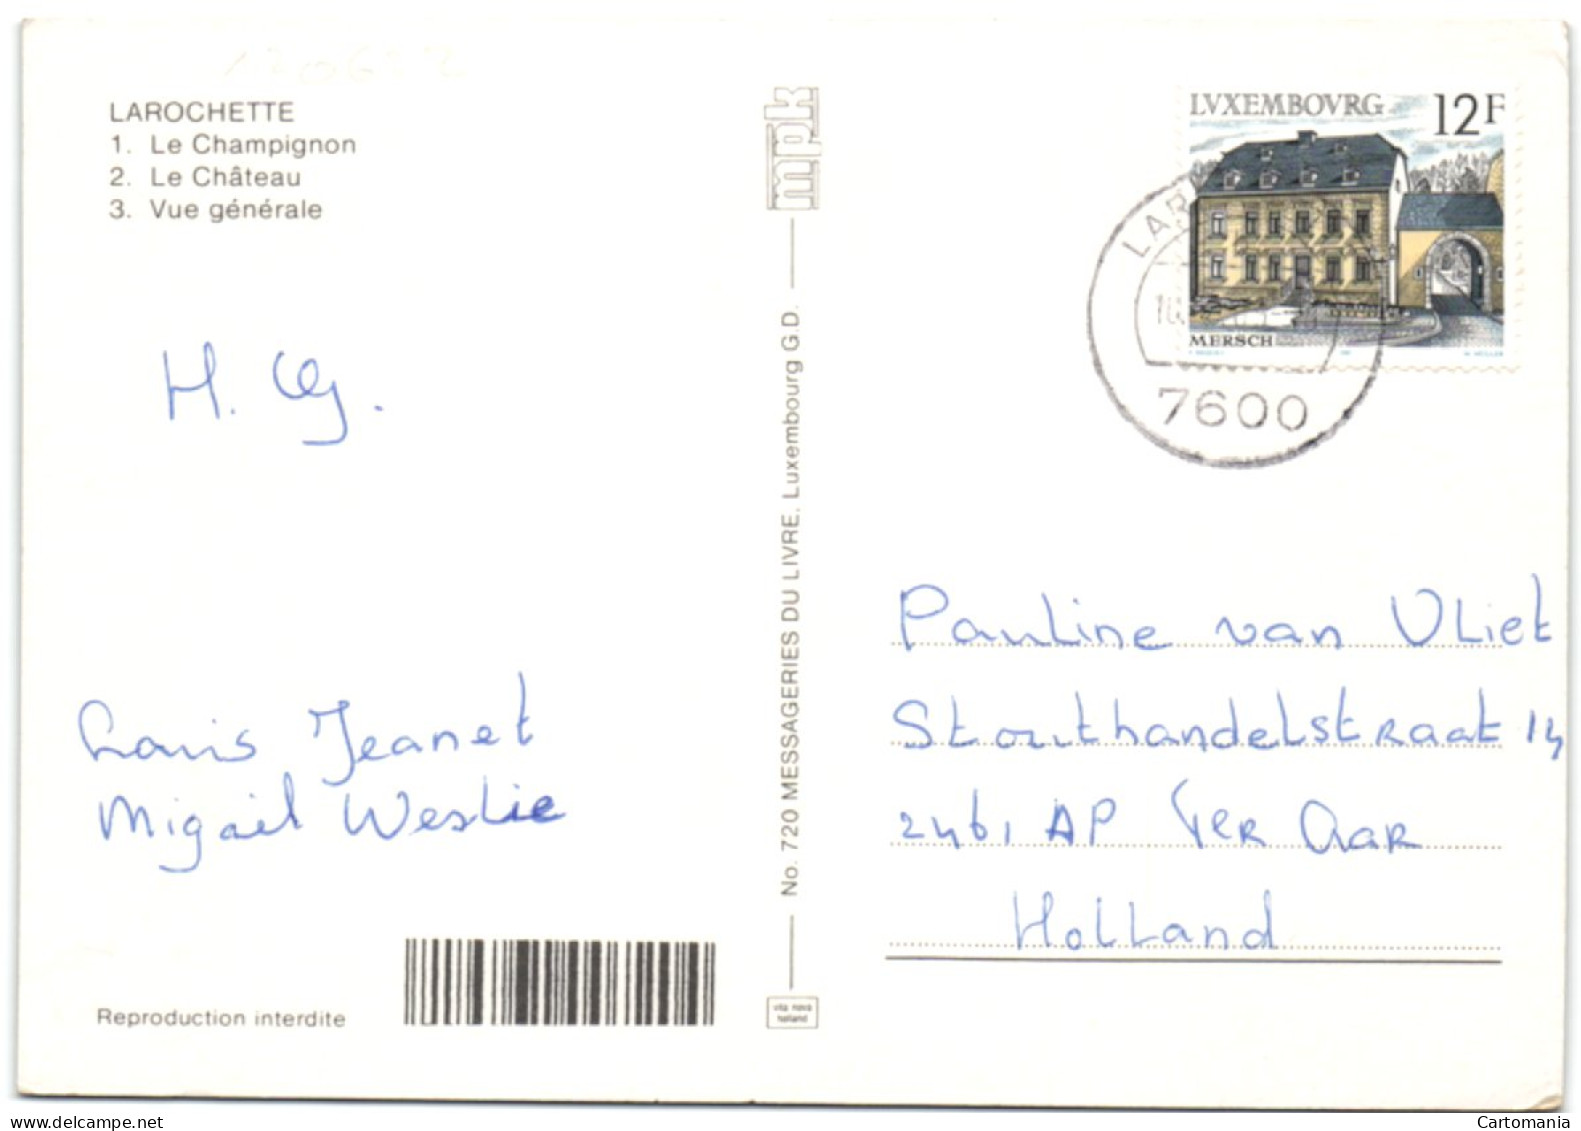 LAROCHETTE
1. Le Champignon
2. Le Château
3. Vue générale
mpk
LVXEMBOVRG 12F
MERSCH
7600
H. Gg.
No. 720 MESSAGERIES DU LIVRE. Luxembourg G.D.
Pauline van Vliet
Stouthandelstraat 14
2461 AP Ter Aar
Holland
Louis Jeanet
Migaïl Weslie
Reproduction interdite
vita nova
holland
Cartomania